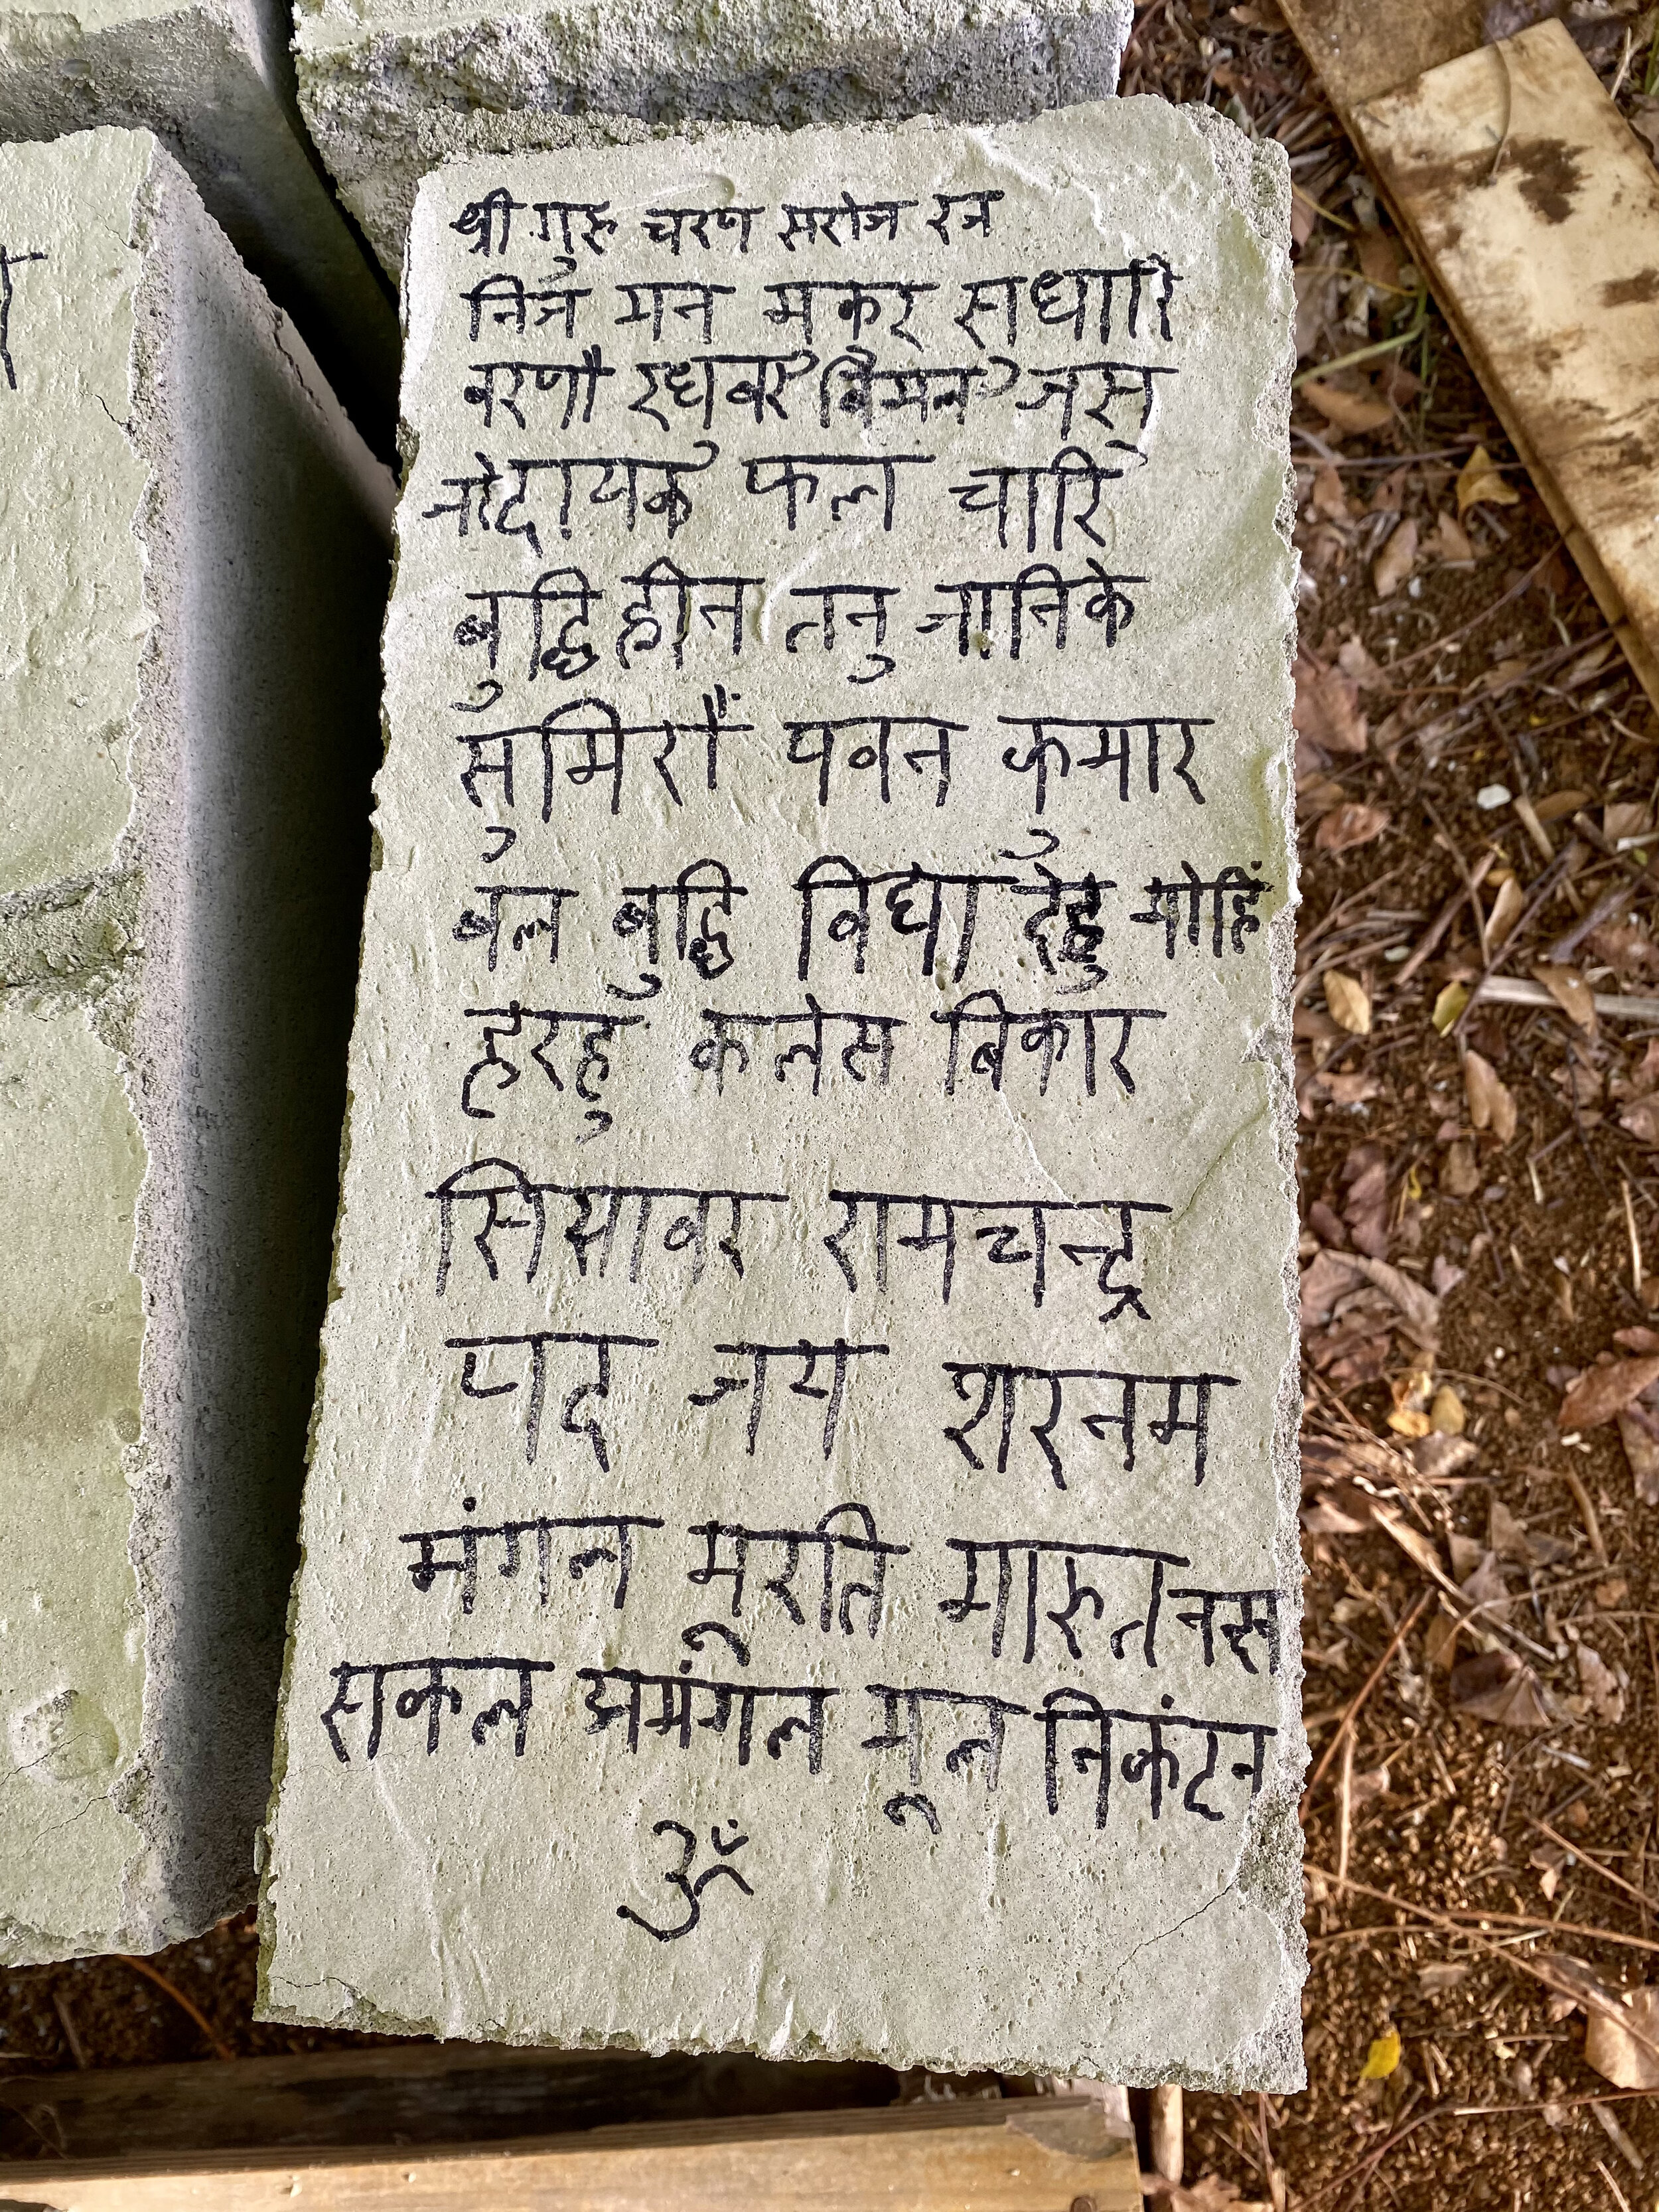 श्री गुरु चरण सरोज रज
निज मन मुकुर सुधारि
वरणौ रघुवर विमल जसु
जोदायक फल चारि
बुद्धि हीन तनु जानिके
सुमिरौं पवन कुमार
बल बुद्धि विद्या देहु मोहिं
हरहु कलेस बिकार
सियावर रामचन्द्र
पद जय शरनम
मंगल मूरति मारुत
सकल अमंगल मूल निकंदन
ॐ